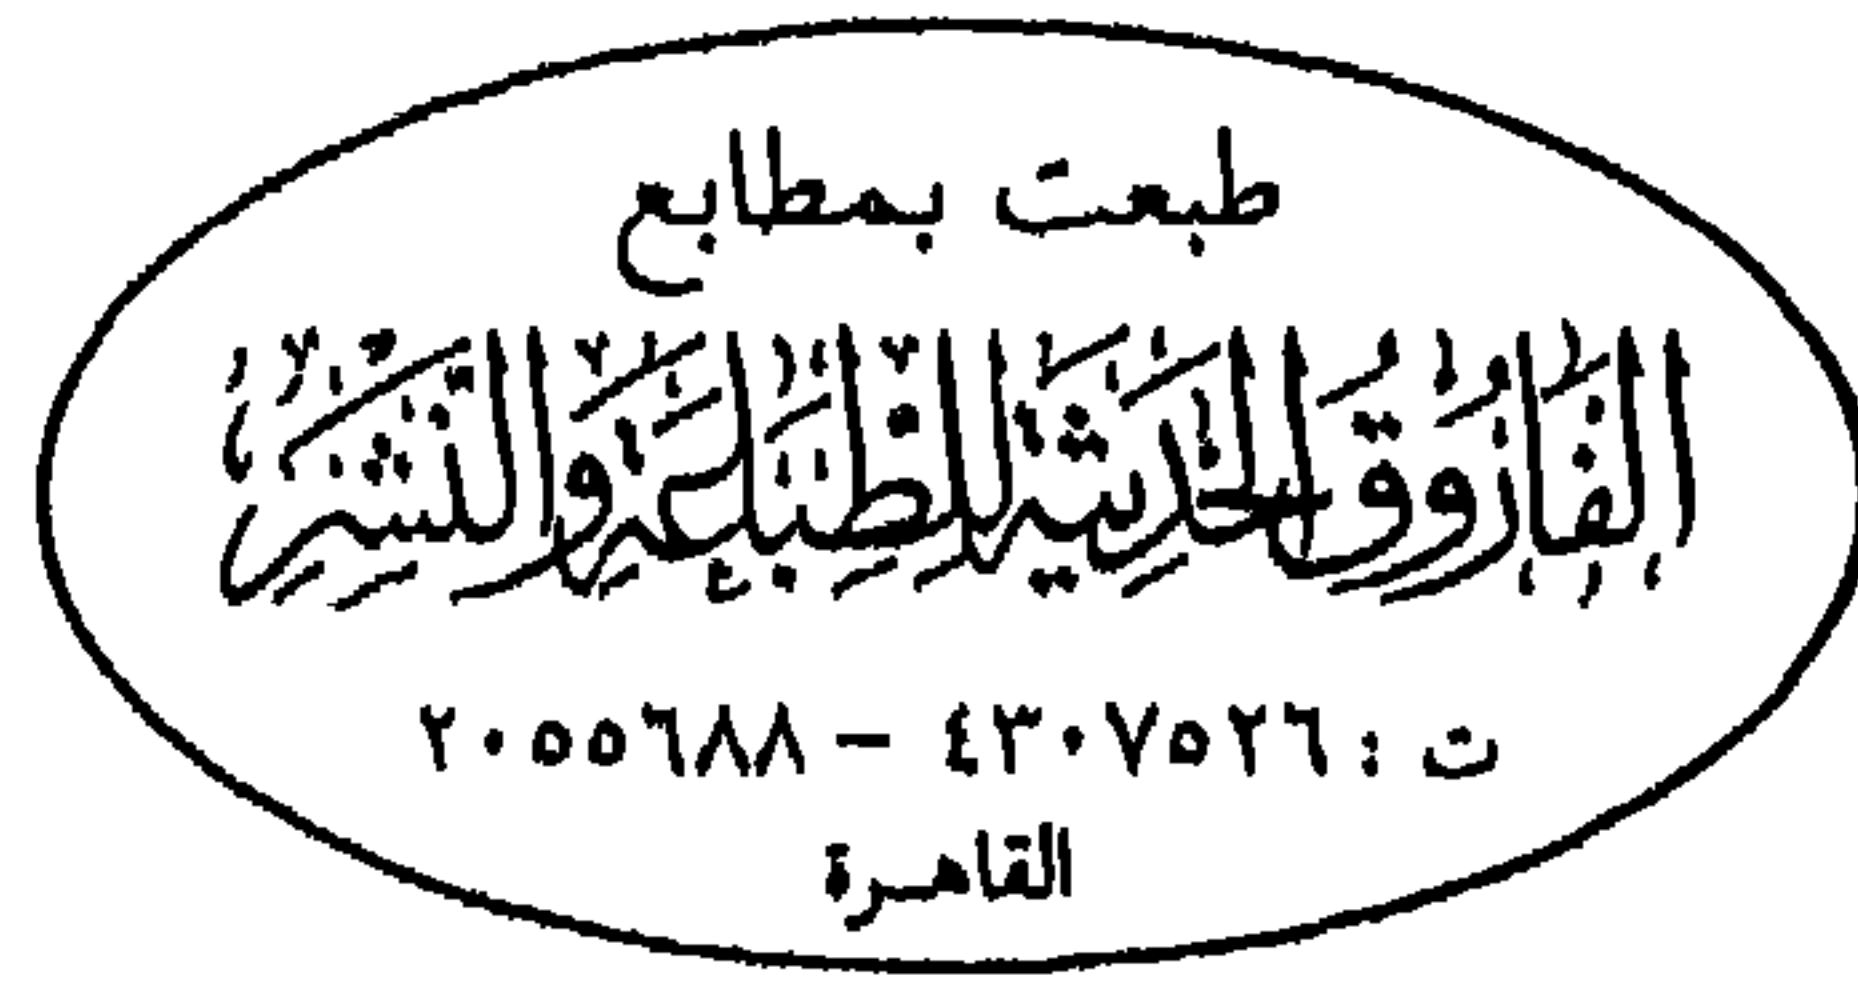 طبعت بمطابع
الفاروق الحديثة للطباعة والنشر
ت : ٤٣٠٧٥٢٦ – ٢٠٥٥٦٨٨
القاهرة